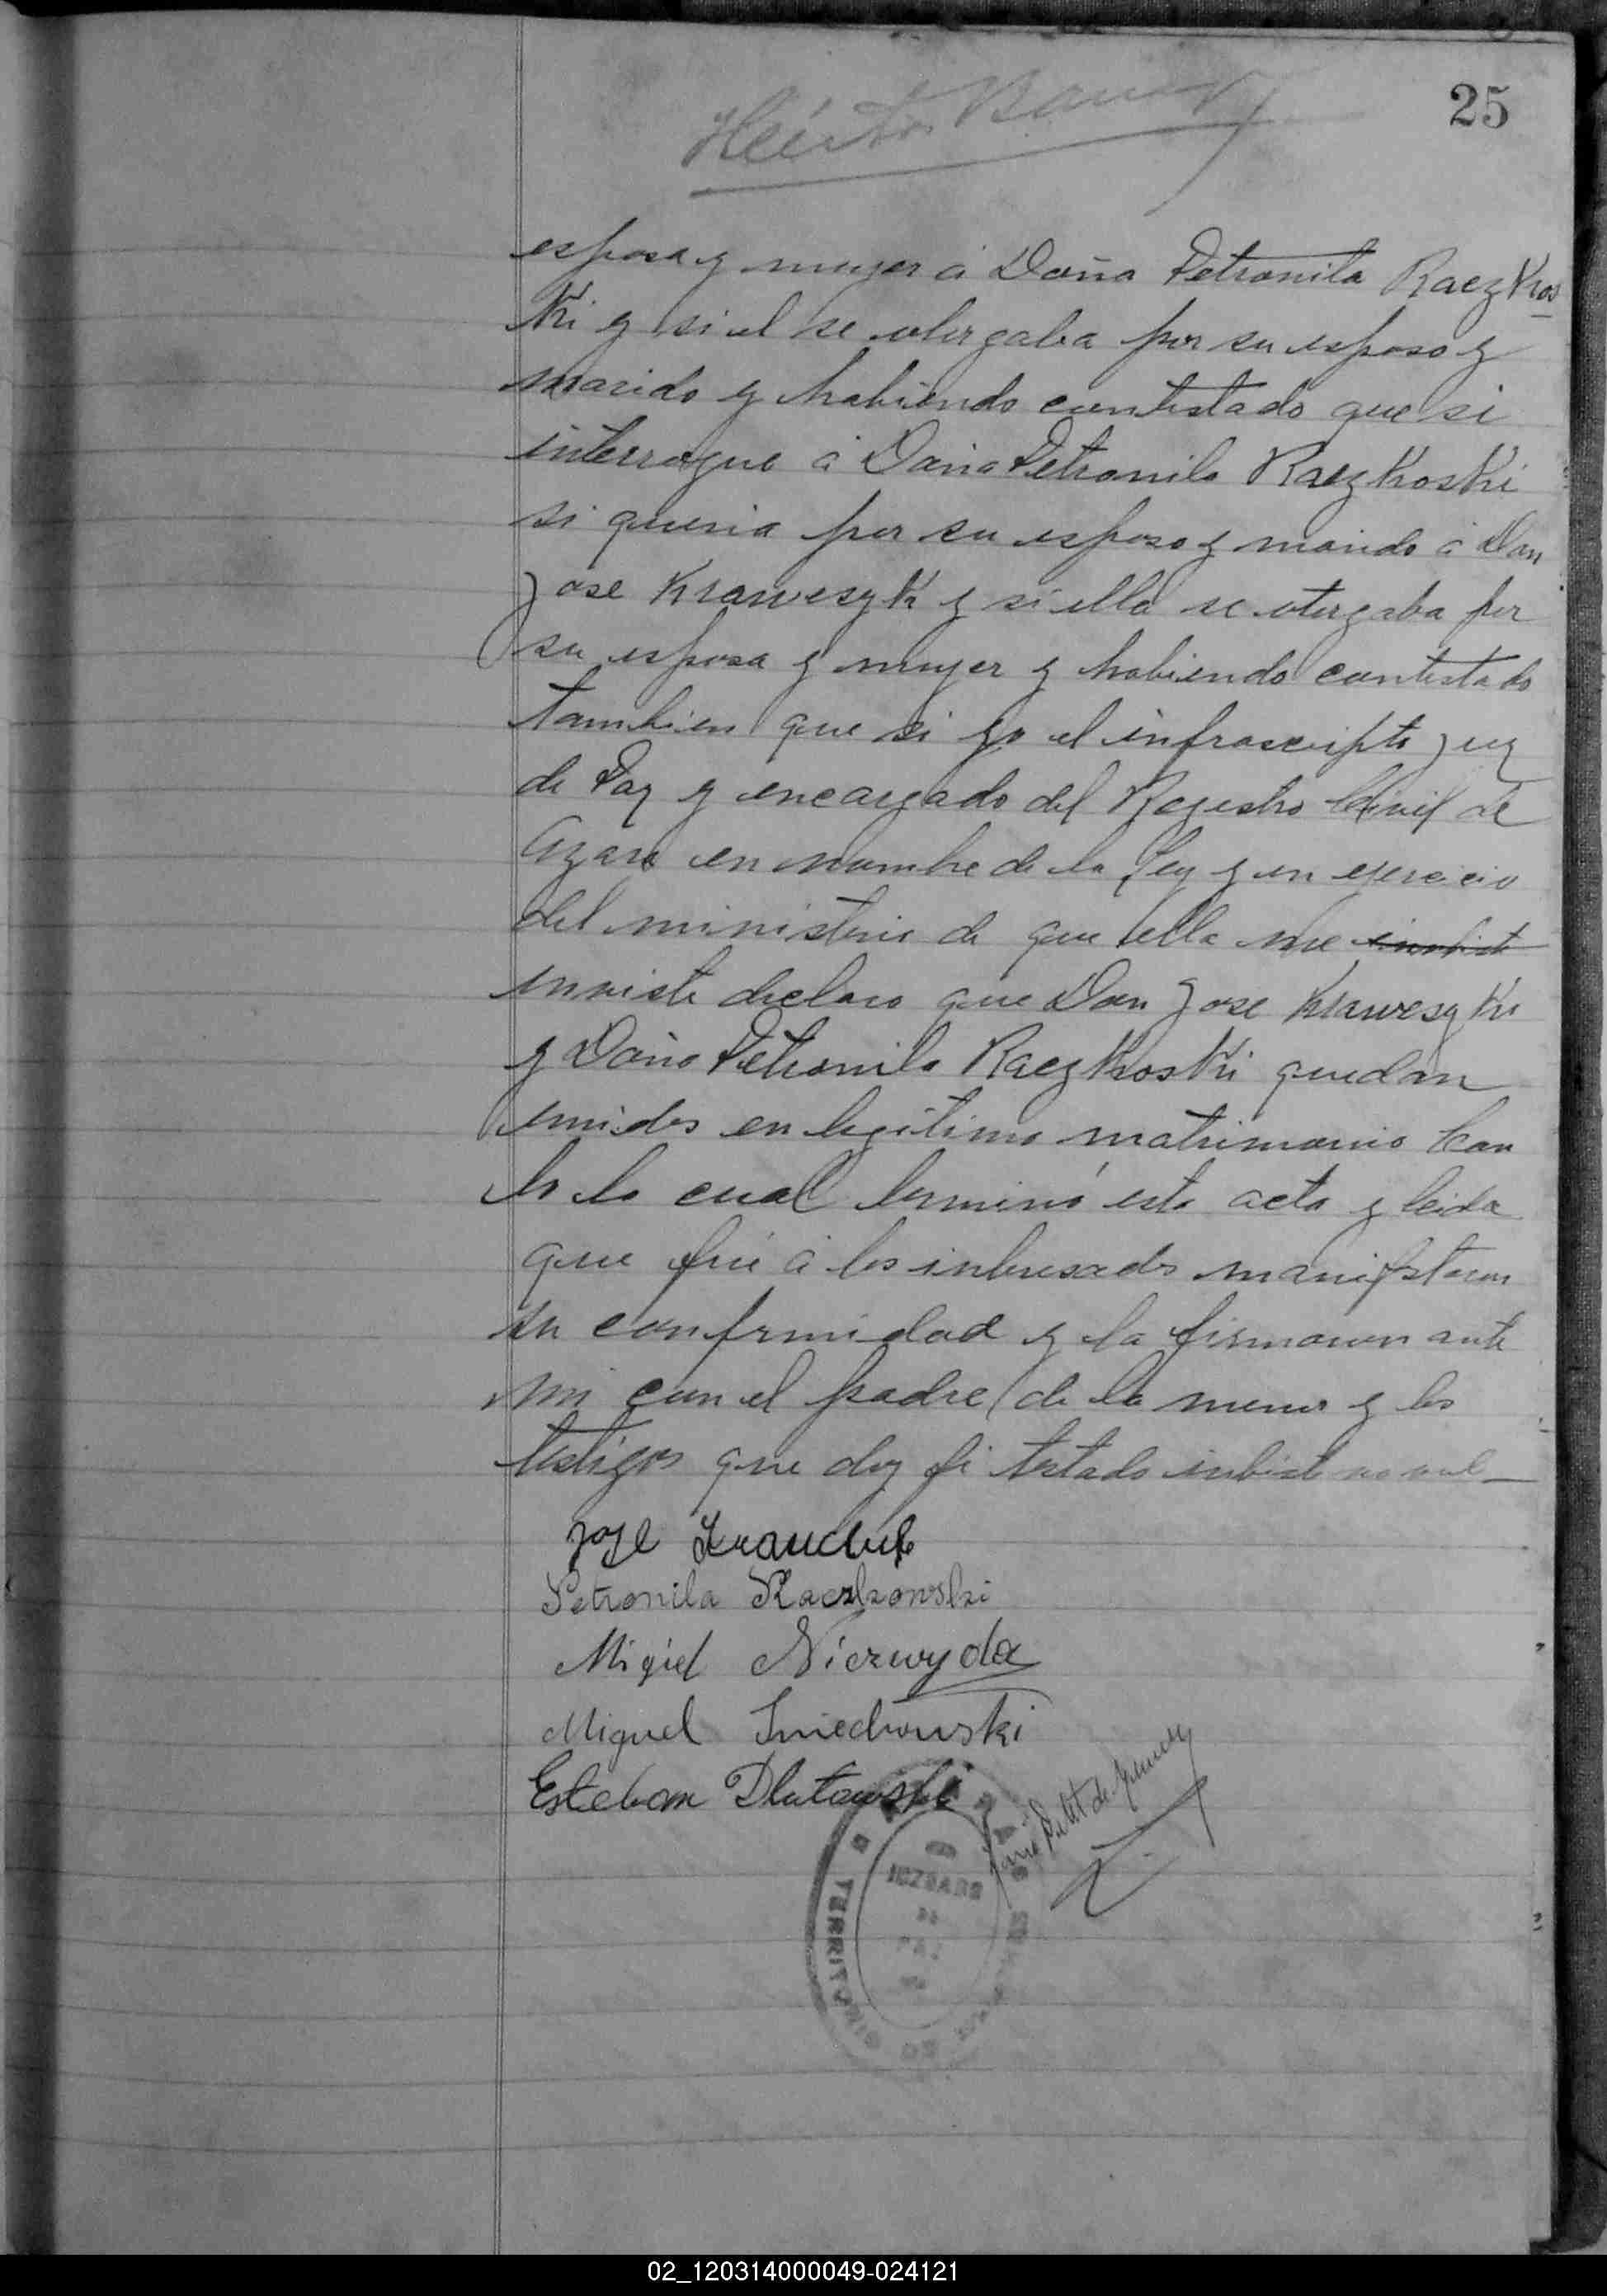 25
Héctor
esposa y mujer á Doña Petronila Raezkos
ki y si el se otorgaba por su esposo y
marido y habiendo contestado que si
interrogue á Doña Petronila Raezkoski
si queria por su esposo y marido á Don
Jose Kraweszyk y si ella se otorgaba por
su esposa y mujer y habiendo contestado
tambien que si yo el infrascripto Juez
de Paz y encargado del Registro Civil de
Azara en nombre de la Ley y en ejercicio
del ministerio de que ella me inbiste
inviste declaro que Don Jose
y Doña Petronila Raezkoski quedan
unidos en legitimo matrimonio Con
lo lo cual terminó esta acta y leida
que fué á los interesados manifestaron
su conformidad y la firmaron ante
mi con el padre de la menor y los
testigos que doy fe testado inbiste no vale
Jose
Petronila Raczkowski
Miguel Nierwyda
Miguel
Esteban Dlutowski
JUZGADO
DE
PAZ
TERRITO
02_120314000049-024121